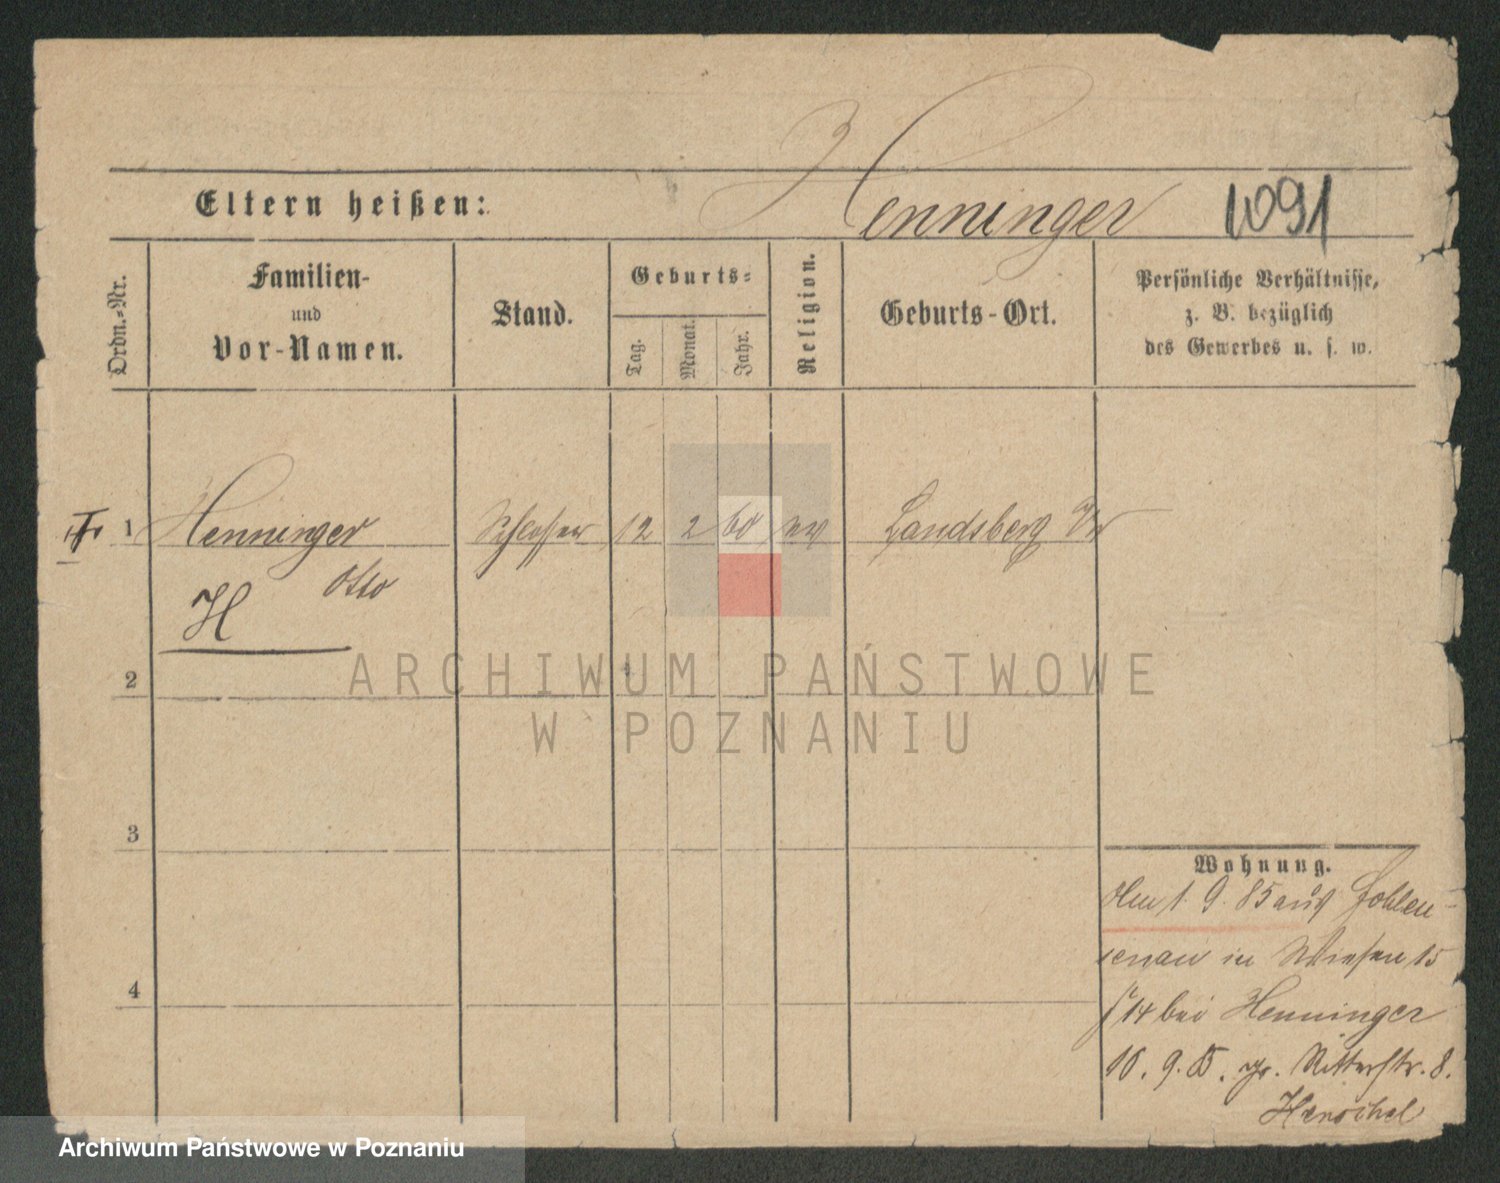 Henninger 1091
Eltern heißen:
Ordn.-Nr.
Familien-
und
Vor-Namen.
Stand.
Geburts-
Tag.
Monat.
Jahr.
Religion.
Geburts-Ort.
Persönliche Verhältnisse,
z. B. bezüglich
des Gewerbes u. s. w.
1 Henninger Schlosser 12 2 60 ev Landsberg
Otto
H
2
3
4
Wohnung.
Am 1. 9. 85 aus
in Wiesen 15
14 bei Henninger
16. 9. 85. gr. Ritterstr. 8.
ARCHIWUM PAŃSTWOWE
W POZNANIU
Archiwum Państwowe w Poznaniu